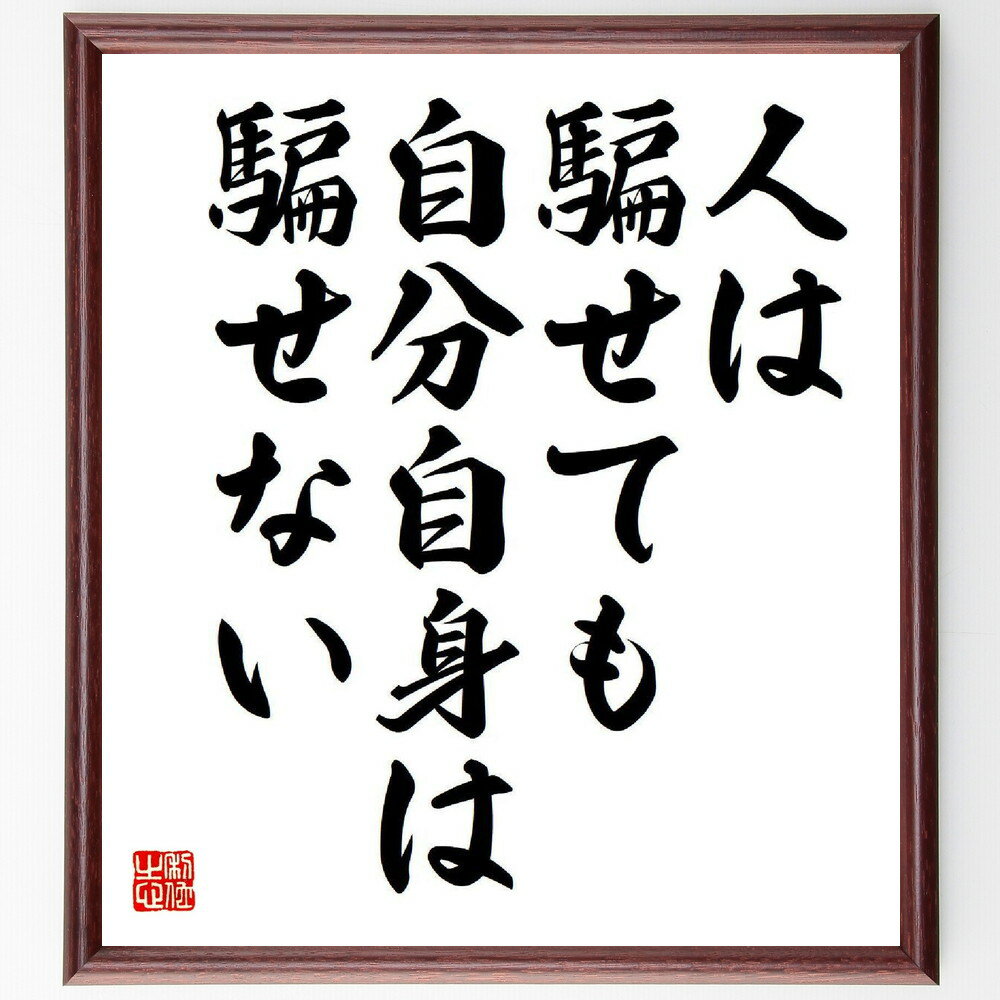 人は
騙せても
自分自身は
騙せない